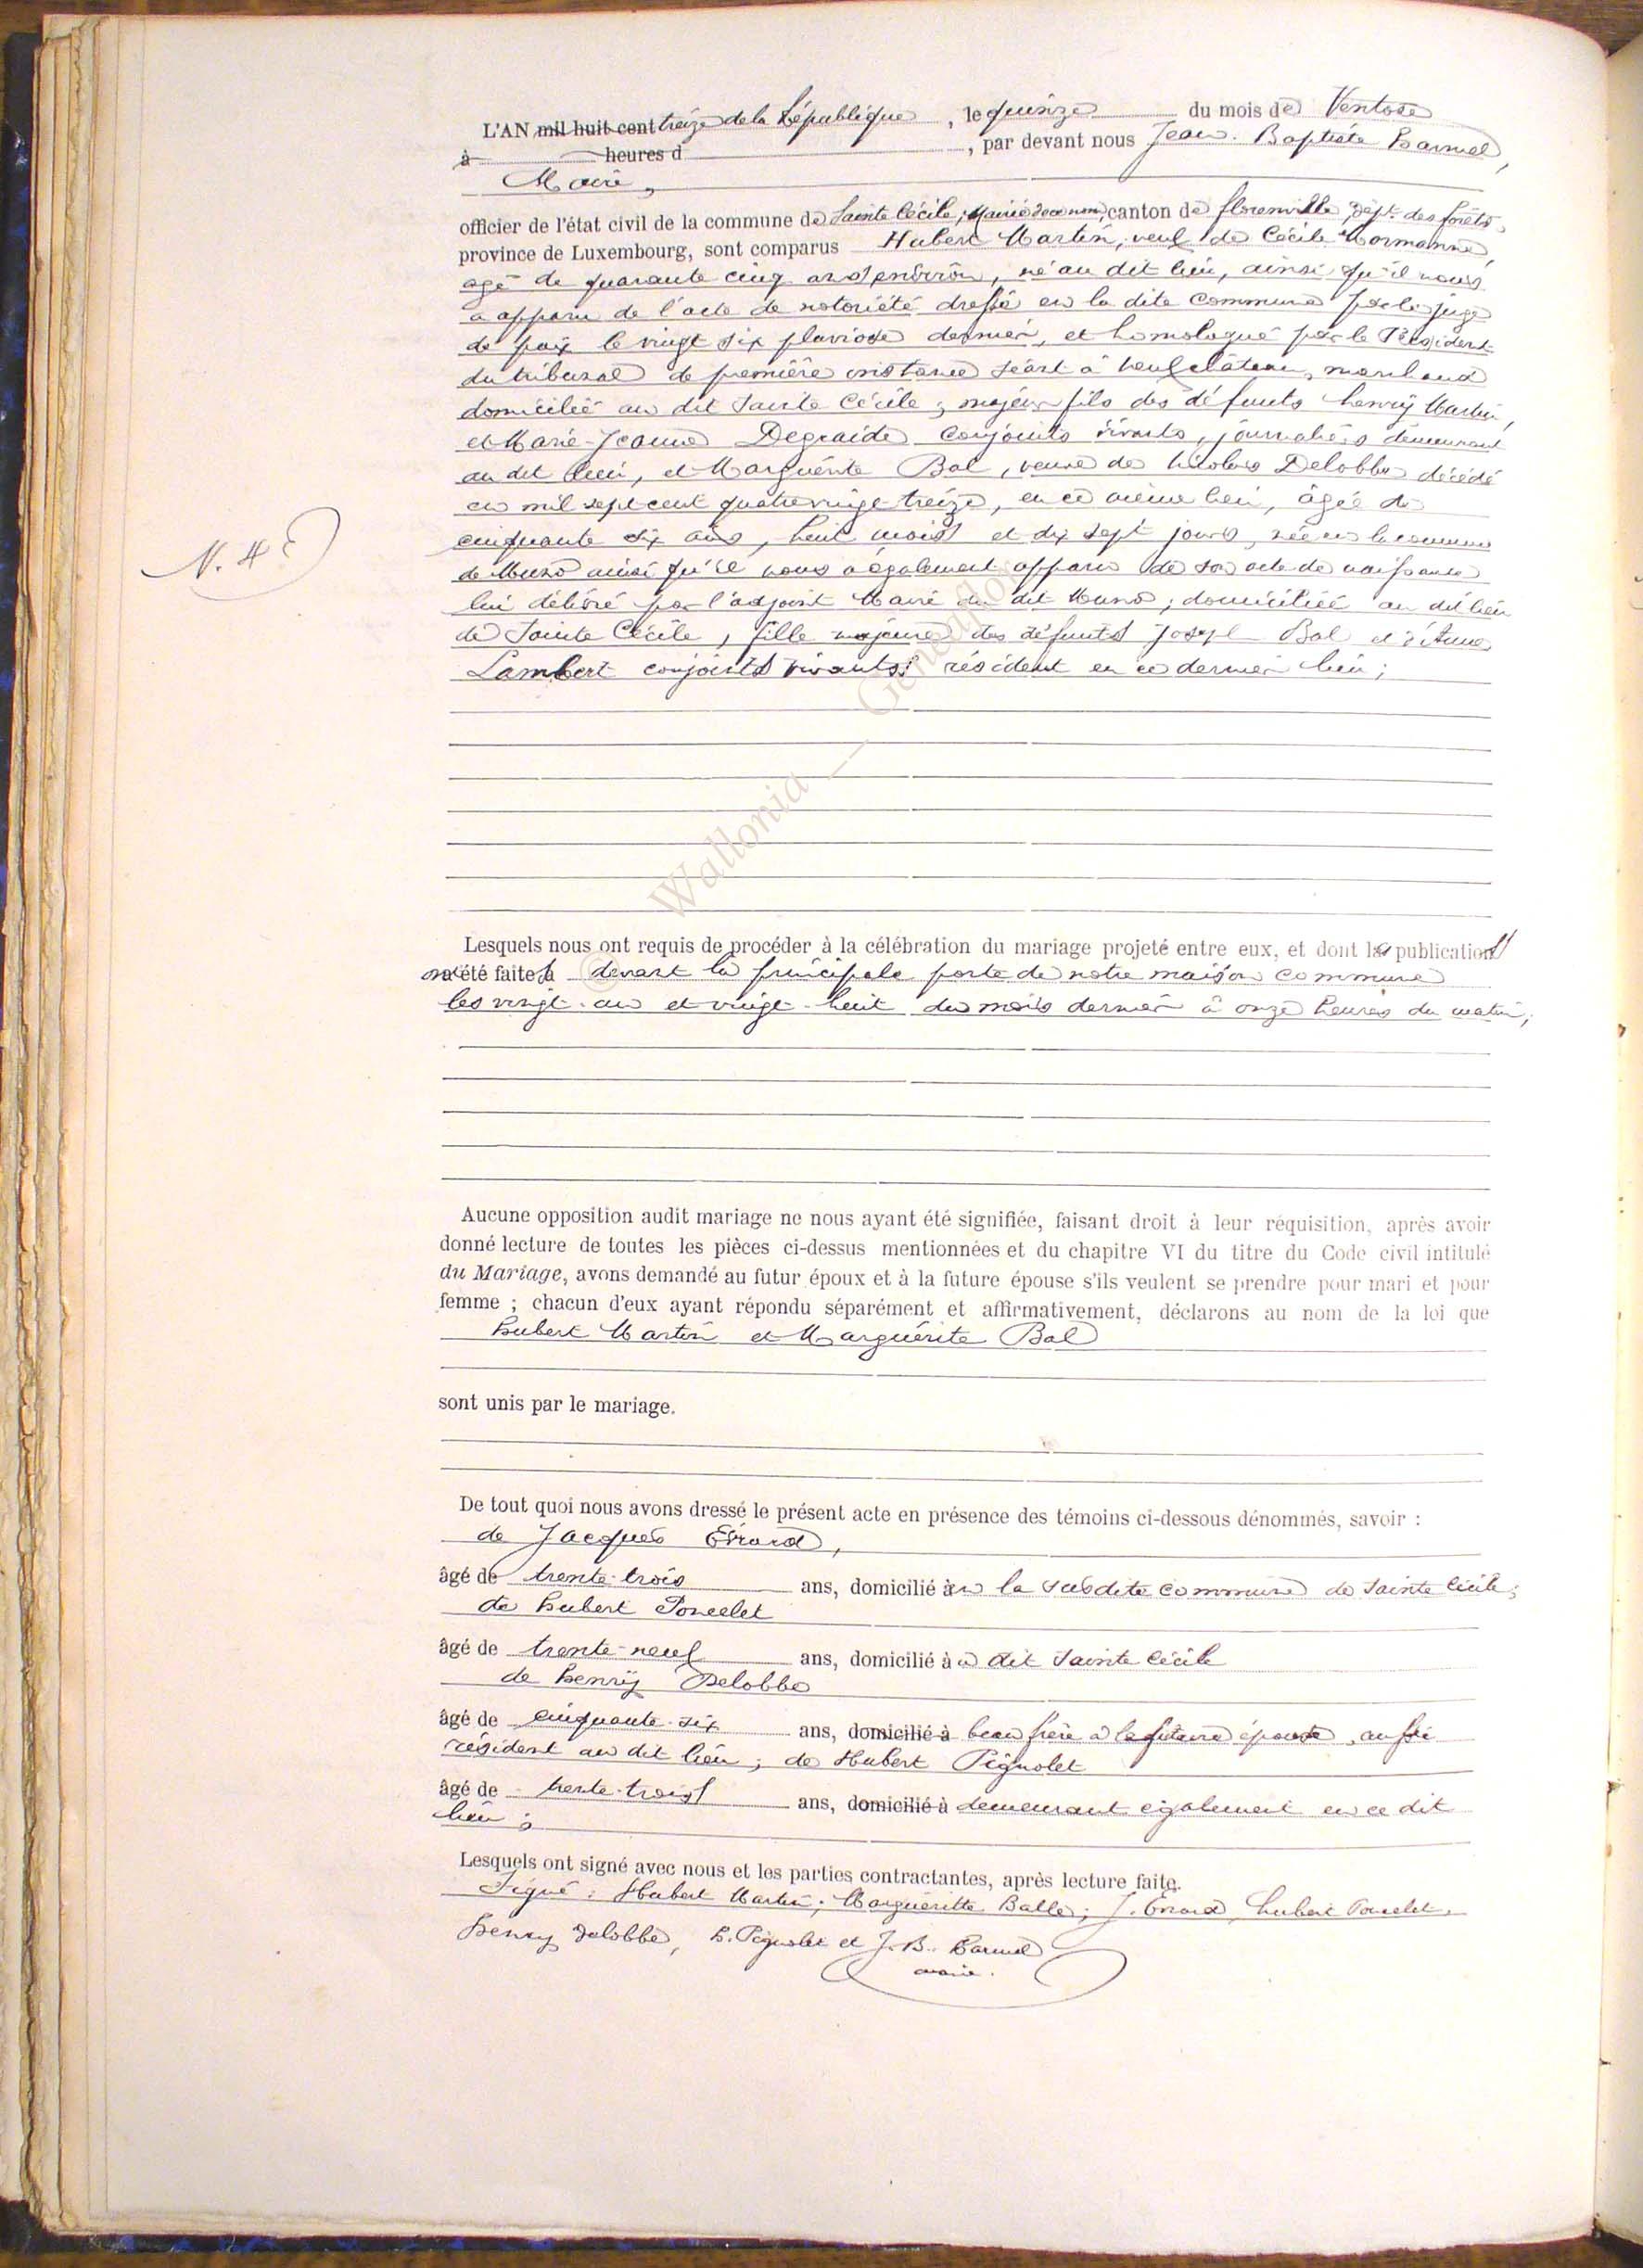 L'AN mil huit cent treize de la République, le quinze du mois de Ventose
à heures d , par devant nous Jean-Baptiste Harmel,
Maire,
officier de l'état civil de la commune de Sainte Cécile, Mairie de ce nom, canton de florenville, Dépt. des forêts,
province de Luxembourg, sont comparus Hubert Martin, veuf de Cécile Normanne,
agé de quarante cinq ans environ, né au dit lieu, ainsi qu'il nous
a apparu de l'acte de notoriété dressé en la dite commune par le juge
de paix le vingt six pluviose dernier, et homologué par le Président
du tribunal de première instance séant à neufchâteau, marchand
domicilié au dit Sainte Cécile; majeur fils des défunts henrÿ Martin,
et Marie-Jeanne Degraide conjoints vivants, journaliers demeurant
au dit lieu, et Marguérite Bal, veuve de Nicolas Delobbe décédé
en mil sept cent quatre vingt treize, en ce même lieu, âgée de
cinquante six ans, huit mois et dix sept jours, née en la commune
de Muno ainsi qu'il nous a également apparu de son acte de naissance
lui délivré par l'adjoint Maire du dit Muno; domiciliée au dit lieu
de Sainte Cécile, fille majeure des défunts Joseph Bal et d'Anne
Lambert conjoints vivants résident en ce dernier lieu;
N. 4
Lesquels nous ont requis de procéder à la célébration du mariage projeté entre eux, et dont les publications
ont été faites devant la principale porte de notre maison commune
les vingt-un et vingt-huit du mois dernier à onze heures du matin;
Aucune opposition audit mariage ne nous ayant été signifiée, faisant droit à leur réquisition, après avoir
donné lecture de toutes les pièces ci-dessus mentionnées et du chapitre VI du titre du Code civil intitulé
du Mariage, avons demandé au futur époux et à la future épouse s'ils veulent se prendre pour mari et pour
femme ; chacun d'eux ayant répondu séparément et affirmativement, déclarons au nom de la loi que
hubert Martin et Marguérite Bal
sont unis par le mariage.
De tout quoi nous avons dressé le présent acte en présence des témoins ci-dessous dénommés, savoir :
de Jacques Evrard,
âgé de trente-trois ans, domicilié en la susdite commune de Sainte Cécile;
de hubert Poncelet
âgé de trente-neuf ans, domicilié au dit Sainte Cécile
de henrÿ Delobbe
âgé de cinquante-six ans, domicilié à beau frère à la future épouse, aussi
résident au dit lieu; de Hubert Pignolet
âgé de trente-trois ans, domicilié à demeurant également en ce dit
lieu;
Lesquels ont signé avec nous et les parties contractantes, après lecture faite.
Signé: Hubert Martin; Marguéritte Balle; J. Evrard, hubert Poncelet,
henry Delobbe, h. Pignolet et J.B. Harmel
maire.
© Wallonia — Généalogie